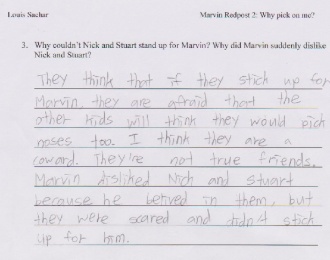 Louis Sachar Marvin Redpost 2: Why pick on me?
3. Why couldn't Nick and Stuart stand up for Marvin? Why did Marvin suddenly dislike
Nick and Stuart?
They think that if they stick up for
Marvin, they are afraid that the
other kids will think they would pick
noses too. I think they are a
coward. They're not true friends.
Marvin disliked Nich and stuart
because he belived in them, but
they were scared and didn't stick
up for him.